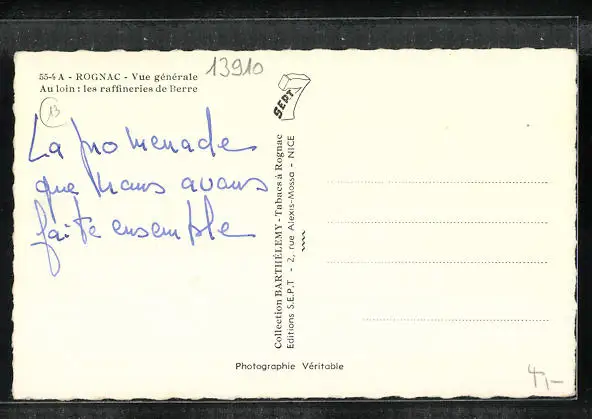 55-4 A - ROGNAC - Vue générale
Au loin : les raffineries de Berre
13910
13
La promenade
que nous avons
faite ensemble
SEPT
Collection BARTHÉLEMY - Tabacs à Rognac
Editions S.E.P.T - 2, rue Alexis-Mossa - NICE
Photographie Véritable
4,-